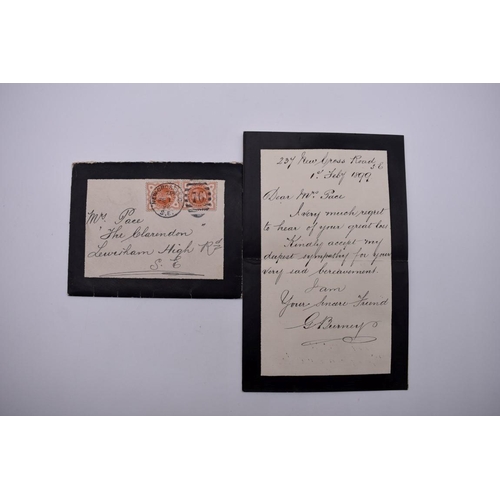 Mr. Pace
"The Clarendon"
Lewisham High Rd
S. E
237 New Cross Road
S.E
1st Feby 1899
Dear Mr. Pace
I very much regret
to hear of your great loss
Kindly accept my
deepest sympathy for your
very sad bereavement
I am
Your Sincere Friend
G Burney